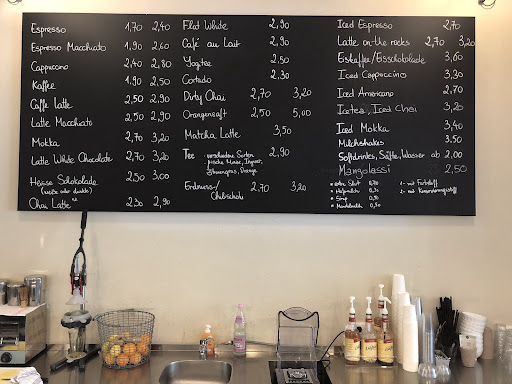 Espresso 1,70 2,40
Espresso Macchiato 1,90 2,60
Cappuccino 2,40 2,80
Kaffee 1,90 2,50
Caffe Latte 2,50 2,90
Latte Macchiato 2,50 2,90
Mokka 2,70 3,20
Latte White Chocolate 2,70 3,20
Heisse Schokolade 2,50 3,00
(weiße oder dunkle)
Chai Latte 2,30 2,90
Flat White 2,90
Café au Lait 2,90
Yogitee 2,50
Cortado 2,30
Dirty Chai 2,70 3,20
Orangensaft 2,50 5,00
Matcha Latte 3,50
Tee - verschiedene Sorten 2,90
- frische Minze, Ingwer,
Zitronengras, Orange
Erdnuss-/ 2,70 3,20
Chilischoki
Iced Espresso 2,70
Latte on the rocks 2,70 3,20
Eiskaffee/Eisschokolade 3,60
Iced Cappuccino 3,30
Iced Americano 2,70
Icetea, Iced Chai 3,20
Iced Mokka 3,40
Milchshakes 3,50
Softdrinks, Säfte, Wasser ab 2,00
Mangolassi 2,50
extra Shot 0,70
Hafermilch 0,30
Sirup 0,50
Mandelmilch 0,50
1 - mit Farbstoff
2 - mit Konservierungsstoff